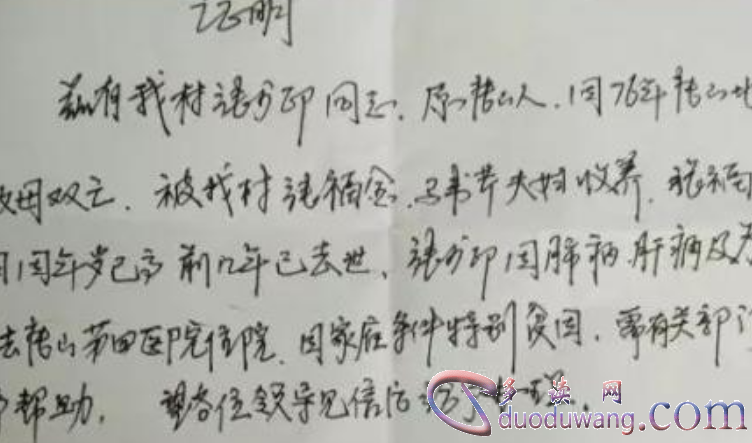 证明
兹有我村张少印同志,原唐山人,因76年唐山地
父母双亡.被我村张福金.马书芹夫妇收养.张福
因年岁已高前几年已去世,张少印因肺病.肝病及
去唐山第四医院住院.因家庭条件特别贫困.需有关部门
帮助.望各位领导见信后给予办理.
多读网
duoduwang.com